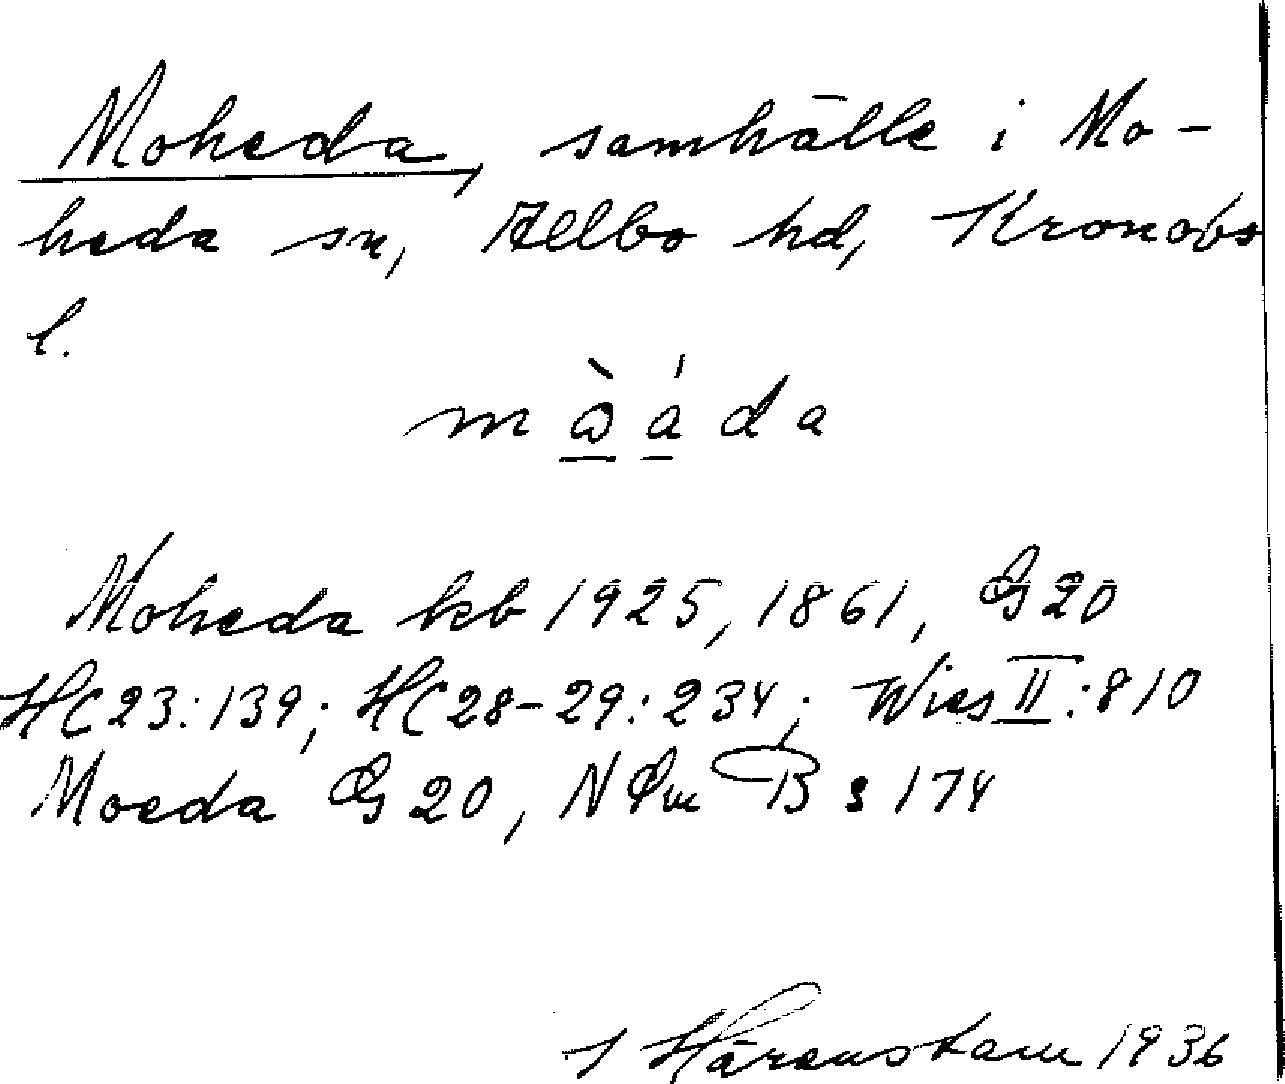 Moheda, samhälle i Mo-
heda sn, Allbo hd, Kronobs
l.
mɷ̀áda
Moheda kb 1925, 1861, G 20
HC 23:139; HC 28-29:234; Wies II:810
Moeda G 20, N Sm B s 174
Härenstam 1936